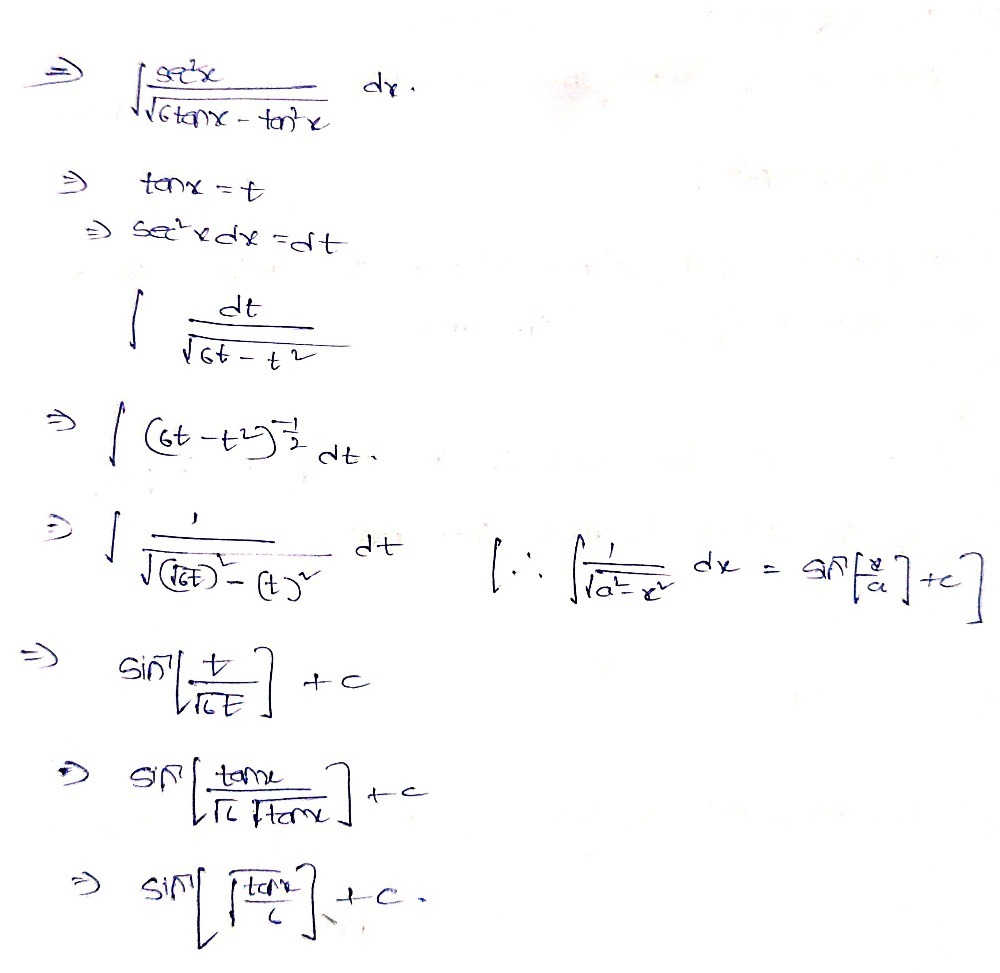 ⇒ ∫ sec²x / √(6tanx - tan²x) dx.
⇒ tanx = t
⇒ sec²x dx = dt
∫ dt / √(6t - t²)
⇒ ∫ (6t - t²)^(-1/2) dt.
⇒ ∫ 1 / √((√6t)² - (t)²) dt [∴ ∫ 1 / √(a² - x²) dx = sin⁻¹[x/a] + c]
⇒ sin⁻¹[t / √6t] + c
⇒ sin⁻¹[tanx / √6 √tanx] + c
⇒ sin⁻¹[√(tanx / 6)] + c.